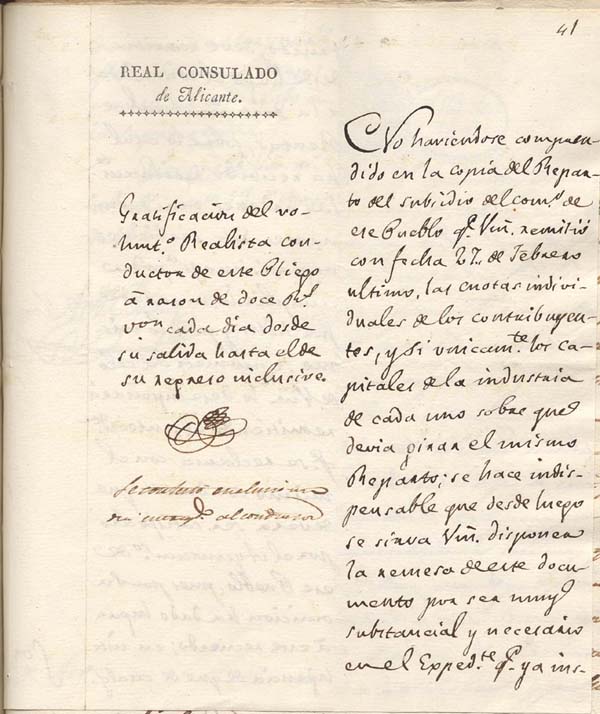 41
REAL CONSULADO
de Alicante.
Gratificacion del vo-
lunt.o Realista con-
ductor de este Pliego
á razon de doce R.s
von cada dia desde
su salida hasta el de
su regreso inclusive.
No haviendose compren-
dido en la copia del Repar-
to del subsidio del com.o de
ese Pueblo q.e Vm. remitió
con fecha 27,, de Febrero
ultimo, las cuotas indivi-
duales de los contribuyen-
tes, y si unicam.te los ca-
pitales de la industria
de cada uno sobre que
devia girar el mismo
Reparto; se hace indis-
pensable que desde luego
se sirva Vm. disponer
la remesa de este docu-
mento por ser muy
substancial y necesario
en el Exped.te q.e ya ins-